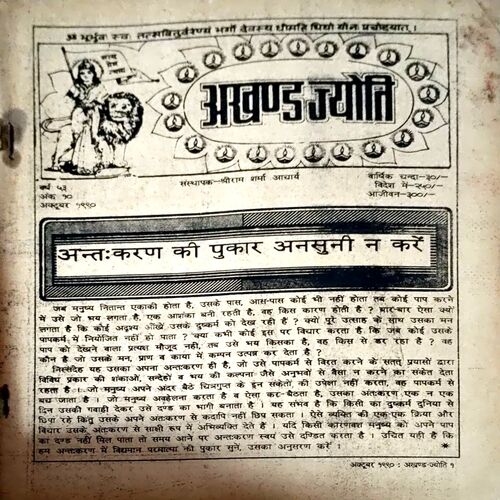 ॐ भूर्भुवः स्वः तत्सवितुर्वरेण्यं भर्गो देवस्य धीमहि धियो योनः प्रचोदयात्।
अखण्ड ज्योति
वर्ष ५३
अंक १०
अक्टूबर १९९०
संस्थापक-श्रीराम शर्मा आचार्य
वार्षिक चन्दा-३०/-
विदेश में-२५०/-
आजीवन-३००/-
अन्तःकरण की पुकार अनसुनी न करें
जब मनुष्य नितान्त एकाकी होता है, उसके पास, आस-पास कोई भी नहीं होता तब कोई पाप करने
में उसे जो भय लगता है, एक आशंका बनी रहती है, वह किस कारण होती है ? बार-बार ऐसा क्यों
लगता है कि कोई अदृश्य आँखें उसके दुष्कर्म को देख रही है ? क्यों पूरे उत्साह के साथ उसका मन
पापकर्म में नियोजित नहीं हो पाता ? क्या कभी कोई इस पर विचार करता है, कि जब कोई उसके
पाप को देखने वाला प्रत्यक्ष मौजूद नहीं, तब उसे भय किसका है, वह किस से डर रहा है ? वह
कौन है जो उसके मन, प्राण व काया में कम्पन उत्पन्न कर देता है ?
निस्संदेह यह उसका अपना अन्तःकरण ही है, जो उसे पापकर्म से विरत करने के सतत् प्रयासों द्वारा
विविध प्रकार की शंकाओं, सन्देहों व भय की कल्पना जैसे अनुभवों से वैसा न करने का संकेत देता
रहता है। जो मनुष्य अपने अंदर बैठे चित्रगुप्त के इन संकेतों की उपेक्षा नहीं करता, वह पापकर्म से
बच जाता है। जो मनुष्य अवहेलना करता है व ऐसा कर बैठता है, उसका अंतःकरण एक न एक
दिन उसकी गवाही देकर उसे दण्ड का भागी बनाता है। यह संभव है कि किसी का दुष्कर्म दुनिया से
छिपा रहे किंतु उसके अपने अंतःकरण से कदापि नहीं छिप सकता। ऐसे व्यक्ति की एक एक क्रिया और
विचार उसके अंतःकरण से साक्षी रूप में अभिव्यक्ति देते हैं। यदि किसी कारणवश मनुष्य को अपने पाप
का दण्ड नहीं मिल पाता तो समय आने पर अन्तःकरण स्वयं उसे दण्डित करता है। उचित यही है कि
हम अन्तःकरण में विद्यमान परमात्मा की पुकार सुनें, उसका अनुसरण करें। *
अक्टूबर १९९० : अखण्ड-ज्योति १